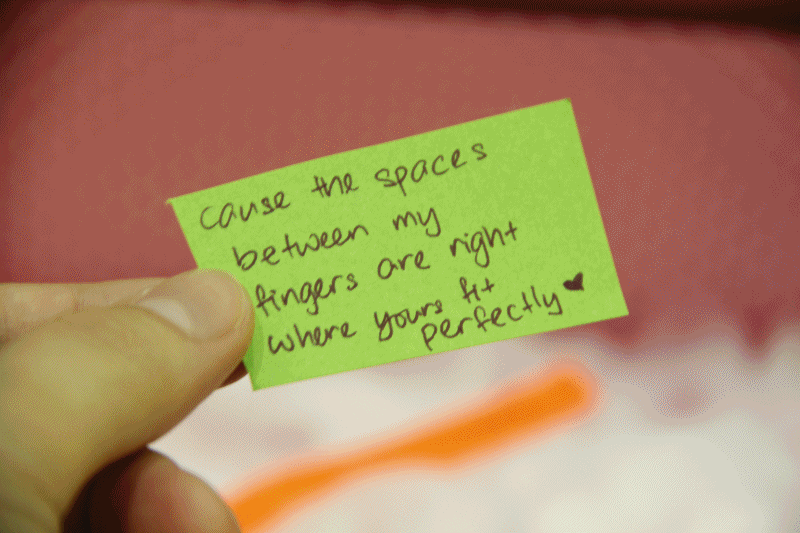 cause the spaces
between my
fingers are right
where yours fit
perfectly ♥